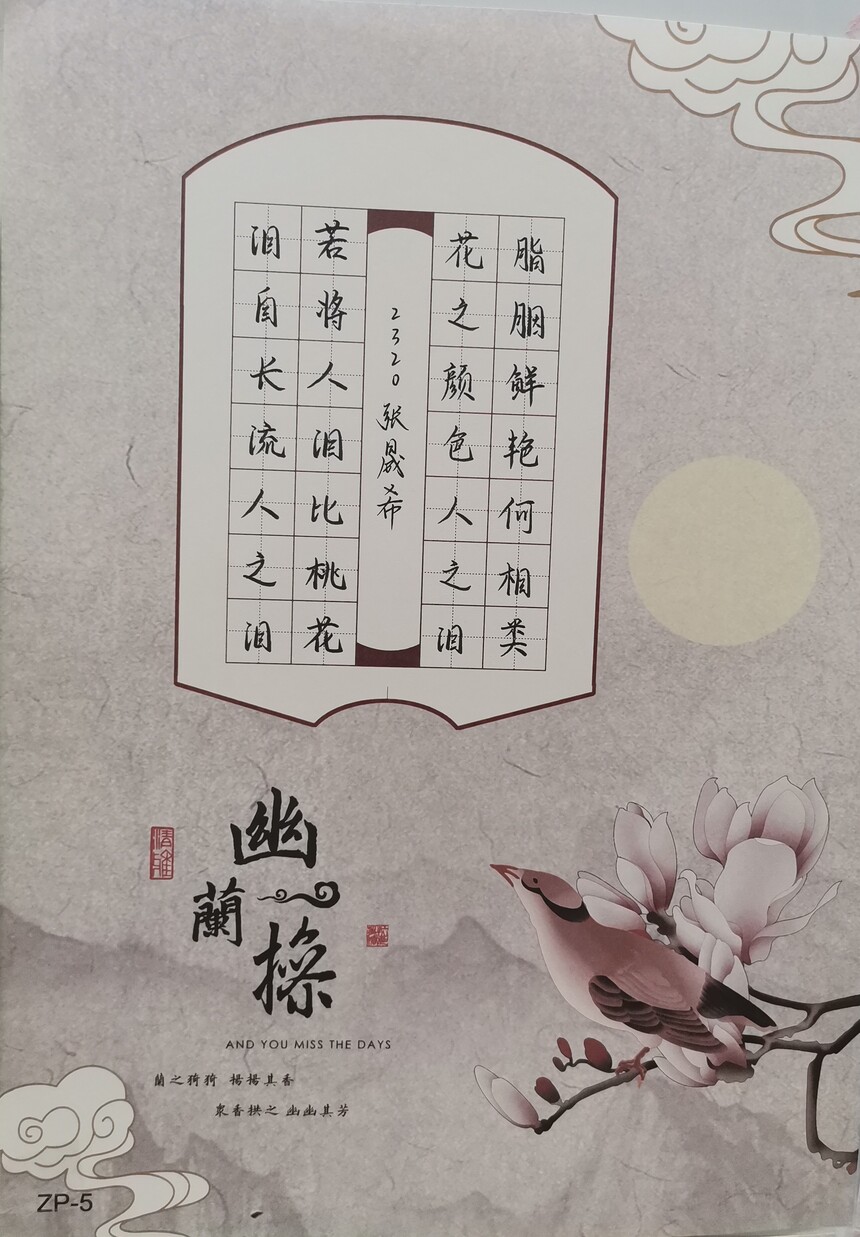 脂胭鲜艳何相类
花之颜色人之泪
2320 张晟希
若将人泪比桃花
泪自长流人之泪
幽蘭操
清雅
AND YOU MISS THE DAYS
蘭之猗猗 揚揚其香
眾香拱之 幽幽其芳
ZP-5